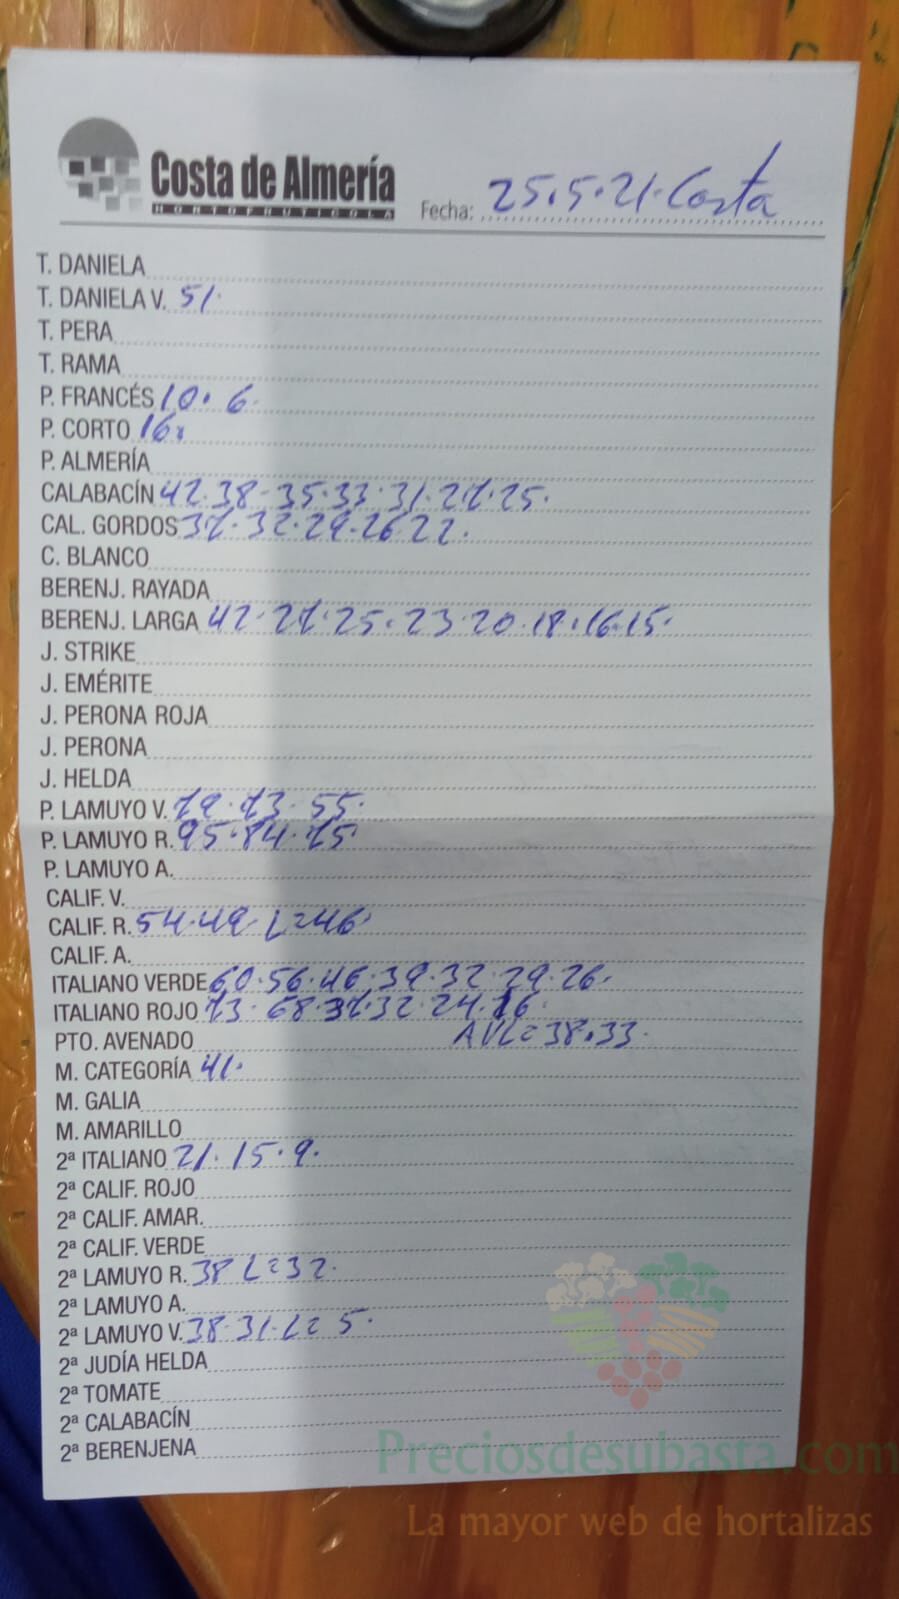 Costa de Almería
HORTOFRUTICOLA
Fecha: 25.5.21. Costa
T. DANIELA
T. DANIELA V. 51.
T. PERA
T. RAMA
P. FRANCÉS 10. 6.
P. CORTO 16.
P. ALMERÍA
CALABACÍN 42.38-35.33.31.27.25.
CAL. GORDOS 37.32.29.26 22.
C. BLANCO
BERENJ. RAYADA
BERENJ. LARGA 42.27.25.23.20.18.16.15.
J. STRIKE
J. EMÉRITE
J. PERONA ROJA
J. PERONA
J. HELDA
P. LAMUYO V. 79.73.55.
P. LAMUYO R. 95.84.75
P. LAMUYO A.
CALIF. V.
CALIF. R. 54.49 L=46
CALIF. A.
ITALIANO VERDE 60.56.46.39.32.29.26.
ITALIANO ROJO 73.68.37.32.24.16.
PTO. AVENADO AVL=38.33.
M. CATEGORÍA 41.
M. GALIA
M. AMARILLO
2ª ITALIANO 21.15.9.
2ª CALIF. ROJO
2ª CALIF. AMAR.
2ª CALIF. VERDE
2ª LAMUYO R. 38 L=32.
2ª LAMUYO A.
2ª LAMUYO V. 38.31.L= 5.
2ª JUDÍA HELDA
2ª TOMATE
2ª CALABACÍN
2ª BERENJENA
Preciosdesubasta.com
La mayor web de hortalizas